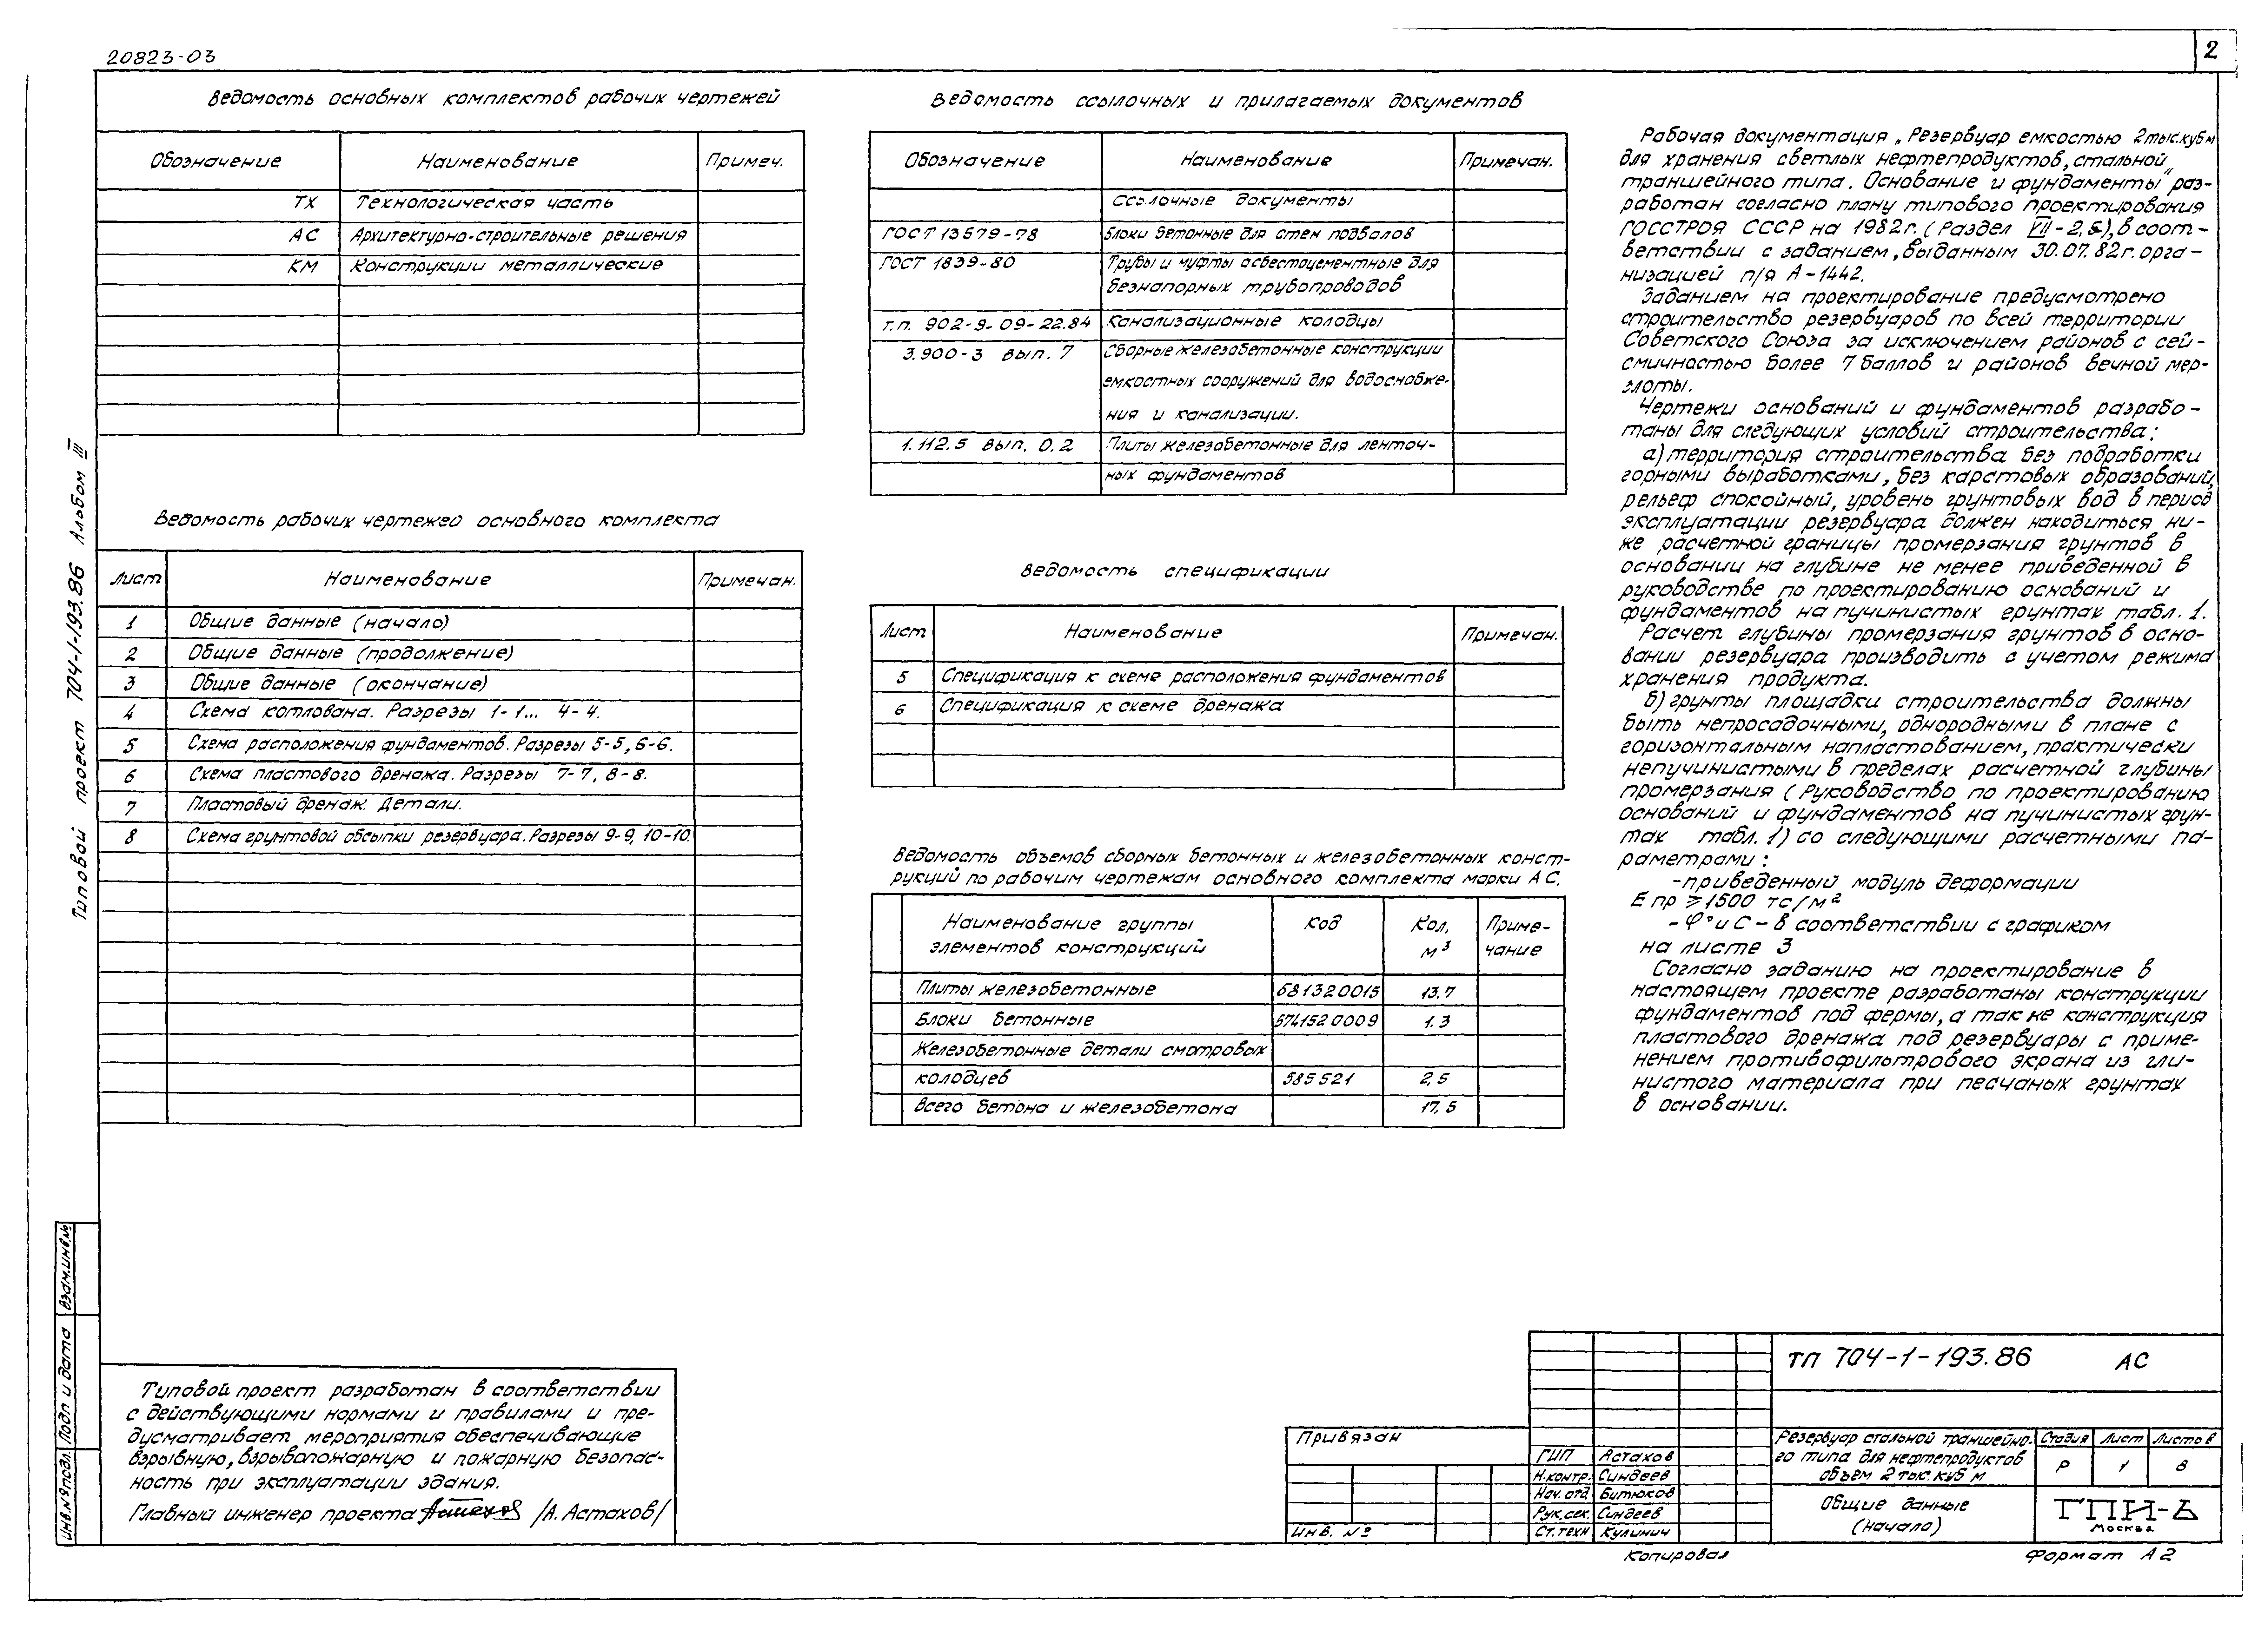 20823-03
2
Ведомость основных комплектов рабочих чертежей
Обозначение Наименование Примеч.
ТХ Технологическая часть
АС Архитектурно-строительные решения
КМ Конструкции металлические
Ведомость рабочих чертежей основного комплекта
Лист Наименование Примечан.
1 Общие данные (начало)
2 Общие данные (продолжение)
3 Общие данные (окончание)
4 Схема котлована. Разрезы 1-1... 4-4.
5 Схема расположения фундаментов. Разрезы 5-5, 6-6.
6 Схема пластового дренажа. Разрезы 7-7, 8-8.
7 Пластовый дренаж. Детали.
8 Схема грунтовой обсыпки резервуара. Разрезы 9-9, 10-10.
Ведомость ссылочных и прилагаемых документов
Обозначение Наименование Примечан.
Ссылочные документы
ГОСТ 13579-78 Блоки бетонные для стен подвалов
ГОСТ 1839-80 Трубы и муфты асбестоцементные для
безнапорных трубопроводов
т.п. 902-9-09-22.84 Канализационные колодцы
3.900-3 вып. 7 Сборные железобетонные конструкции
емкостных сооружений для водоснабже-
ния и канализации.
1.112.5 вып. 0.2 Плиты железобетонные для ленточ-
ных фундаментов
Ведомость спецификации
Лист Наименование Примечан.
5 Спецификация к схеме расположения фундаментов
6 Спецификация к схеме дренажа
Ведомость объемов сборных бетонных и железобетонных конст-
рукций по рабочим чертежам основного комплекта марки АС.
Наименование группы Код Кол, Приме-
элементов конструкций м³ чание
Плиты железобетонные 581320015 13.7
Блоки бетонные 5741520009 1.3
Железобетонные детали смотровых
колодцев 585521 2,5
Всего бетона и железобетона 17,5
Рабочая документация „Резервуар емкостью 2тыс.куб м
для хранения светлых нефтепродуктов, стальной
траншейного типа. Основание и фундаменты" раз-
работан согласно плану типового проектирования
ГОССТРОЯ СССР на 1982г. (Раздел VII-2,8), в соот-
ветствии с заданием, выданным 30.07.82г. орга-
низацией п/я А-1442.
Заданием на проектирование предусмотрено
строительство резервуаров по всей территории
Советского Союза за исключением районов с сей-
смичностью более 7 баллов и районов вечной мер-
злоты.
Чертежи оснований и фундаментов разрабо-
таны для следующих условий строительства:
а) территория строительства без подработки
горными выработками, без карстовых образований,
рельеф спокойный, уровень грунтовых вод в период
эксплуатации резервуара должен находиться ни-
же расчетной границы промерзания грунтов в
основании на глубине не менее приведенной в
руководстве по проектированию оснований и
фундаментов на пучинистых грунтах табл. 1.
Расчет глубины промерзания грунтов в осно-
вании резервуара производить с учетом режима
хранения продукта.
б) грунты площадки строительства должны
быть непросадочными, однородными в плане с
горизонтальным напластованием, практически
непучинистыми в пределах расчетной глубины
промерзания (Руководство по проектированию
оснований и фундаментов на пучинистых грун-
тах табл. 1) со следующими расчетными па-
раметрами:
-приведенный модуль деформации
Е пр ≥ 1500 тс/м²
- φ° и С - в соответствии с графиком
на листе 3
Согласно заданию на проектирование в
настоящем проекте разработаны конструкции
фундаментов под фермы, а так не конструкция
пластового дренажа под резервуары с приме-
нением противофильтрового экрана из гли-
нистого материала при песчаных грунтах
в основании.
Типовой проект 704-1-193.86 Альбом III
Инв.№подл. Подп и дата Взам.инв.№
Типовой проект разработан в соответствии
с действующими нормами и правилами и пре-
дусматривает мероприятия обеспечивающие
взрывную, взрывопожарную и пожарную безопас-
ность при эксплуатации здания.
Главный инженер проекта Астахов /А. Астахов/
Привязан
Инв. №
ГИП Астахов
Н.контр. Синдеев
Нач. отд Битюков
Рук. сек. Синдеев
Ст. техн Кулинич
ТП 704-1-193.86 АС
Резервуар стальной траншейно-
го типа для нефтепродуктов
объем 2 тыс. куб м
Стадия Лист Листов
Р 1 8
Общие данные
(Начало)
ГПИ-6
Москва
Копировал
Формат А2